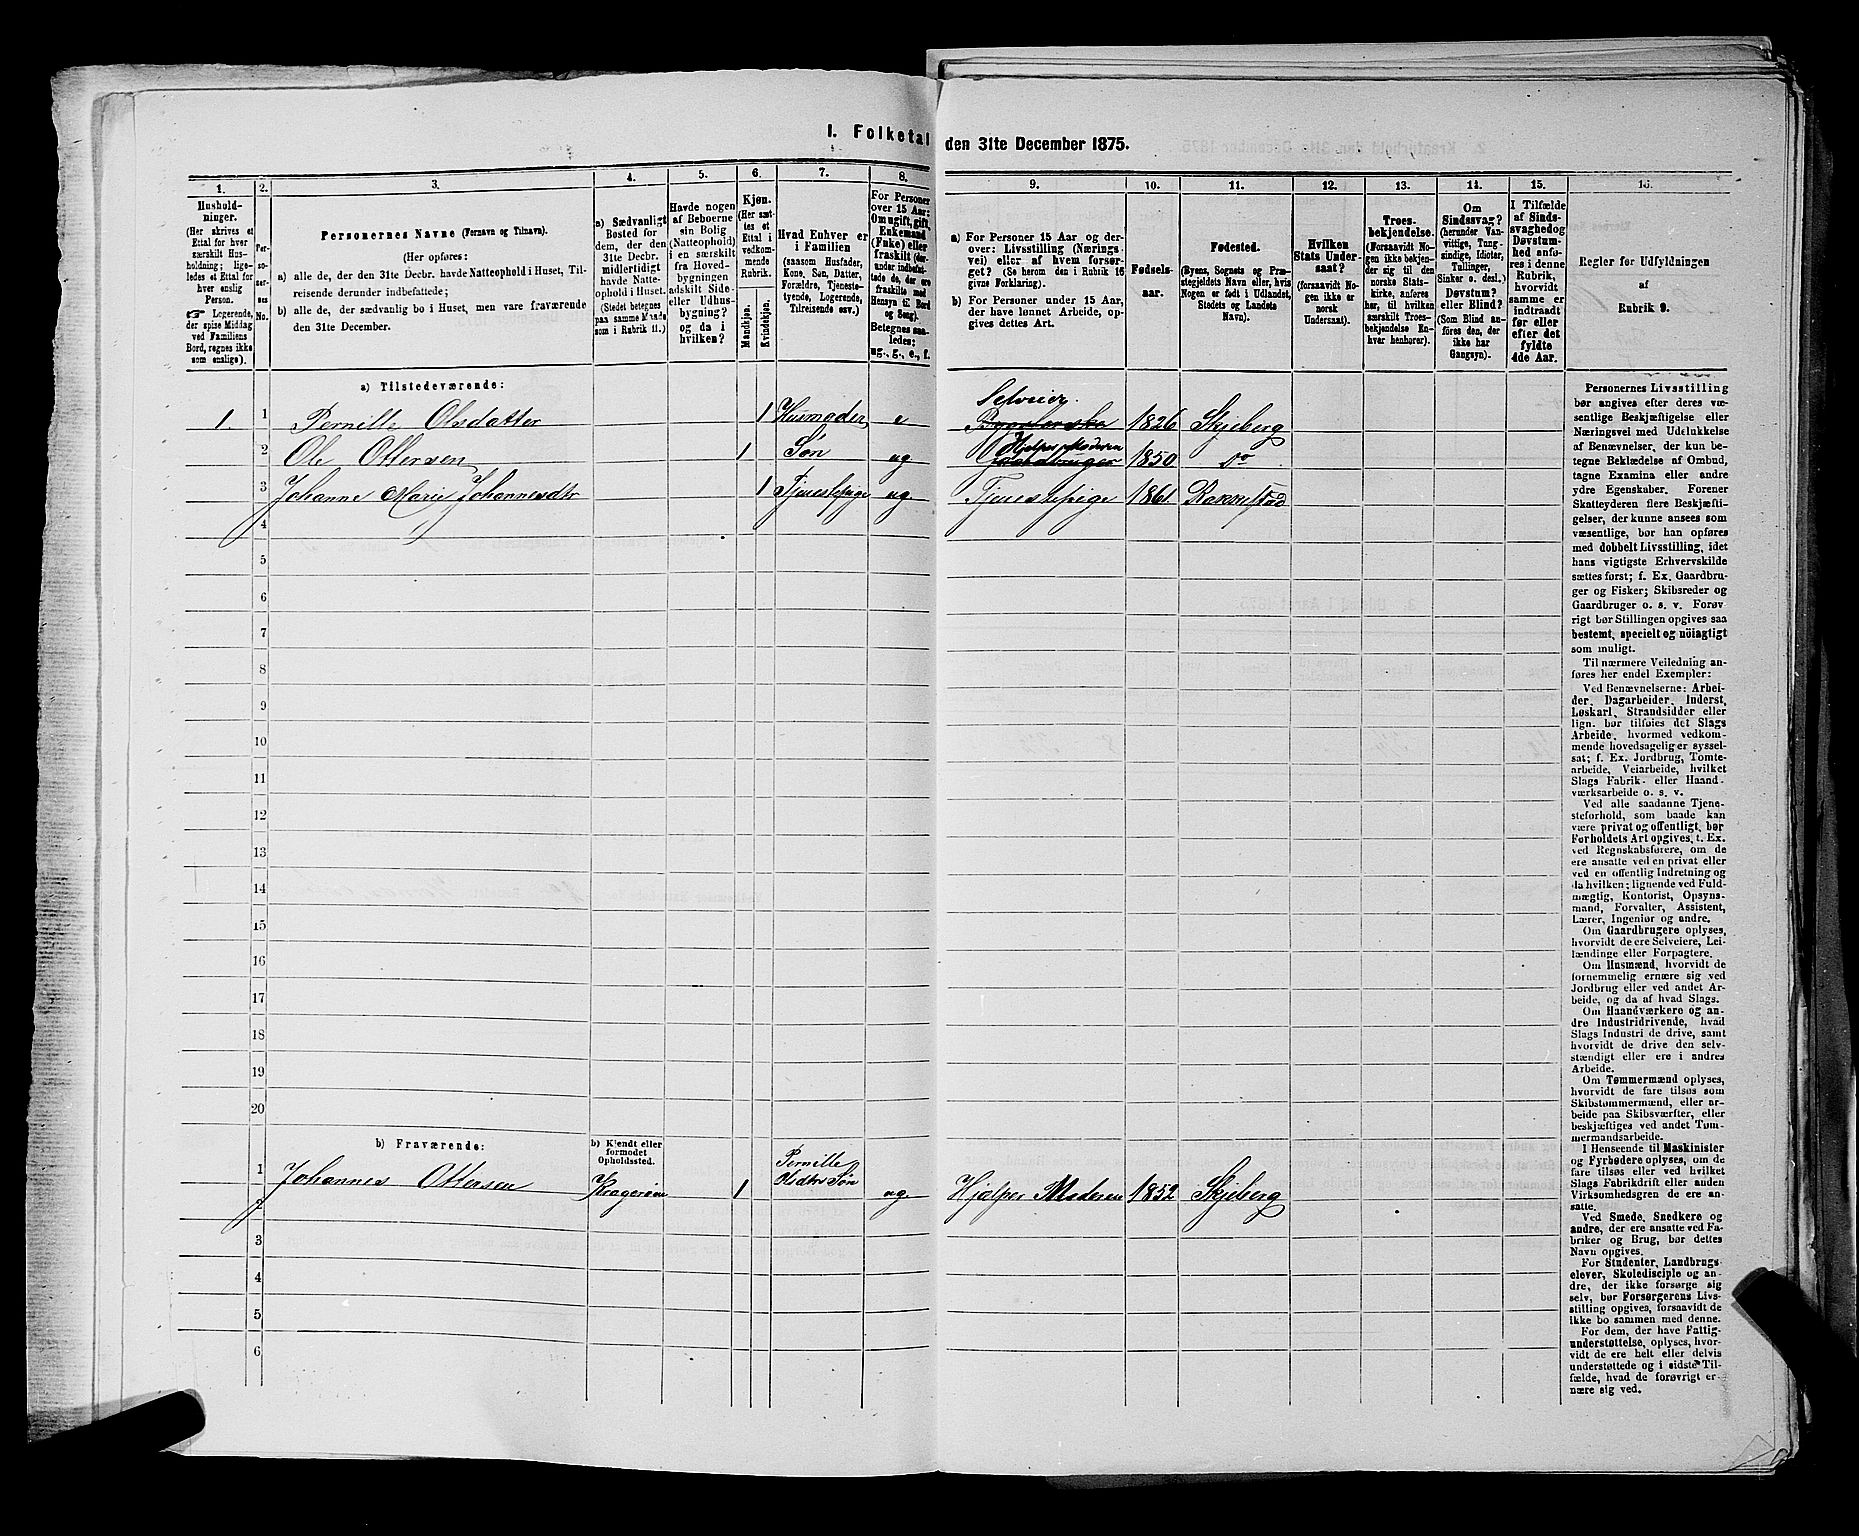 I. Folketal den 31te December 1875.
1. 2. 3. 4. 5. 6. 7. 8. 9. 10. 11. 12. 13. 14. 15. 16.
Hushold-
ninger.
(Her skrives et
Ettal for hver
særskilt Hus-
holdning; lige-
ledes et Ettal for
hver enslig
Person.
☞ Logerende,
der spise Middag
ved Familiens
Bord, regnes ikke
som enslige).
Per-
so-
ner-
nes
No.
Personernes Navne (Fornavn og Tilnavn).
(Her opføres:
a) alle de, der den 31te Decbr. havde Natteophold i Huset, Til-
reisende derunder indbefattede;
b) alle de, der sædvanlig bo i Huset, men vare fraværende
den 31te December.
a) Sædvanligt
Bosted for
dem, der den
31te Decbr.
midlertidigt
havde Natte-
ophold i Huset.
(Stedet betegnes
paa samme Maade
som i Rubrik 11.)
Havde nogen
af Beboerne
sin Bolig
(Natteophold)
i en særskilt
fra Hoved-
bygningen
adskilt Side-
eller Udhus-
bygning?
og da i
hvilken?
Kjøn.
(Her sæt-
tes et
Ettal i
vedkom-
mende
Rubrik.
Mandkjøn.
Kvindekjøn.
Hvad Enhver er
i Familien
(saasom Husfader,
Kone, Søn, Datter,
Forældre, Tjeneste-
tyende, Logerende,
Tilreisende osv.)
For Personer
over 15 Aar:
Om ugift, gift,
Enkemand
(Enke) eller
fraskilt (der-
under indbefat-
tede de, der ere
fraskilte med
Hensyn til Bord
og Seng).
Betegnes saa-
ledes:
ug., g., e., f.
a) For Personer 15 Aar og der-
over: Livsstilling (Nærings-
vei) eller af hvem forsør-
get? (Se herom den i Rubrik 16
givne Forklaring).
b) For Personer under 15 Aar,
der have lønnet Arbeide, op-
gives dettes Art.
Fødsels-
aar.
Fødested.
(Byens, Sognets og Præ-
stegjeldets Navn eller, hvis
Nogen er født i Udlandet,
Stedets og Landets
Navn).
Hvilken
Stats Under-
saat?
(forsaavidt No-
gen ikke er
norsk
Undersaat).
Troes-
bekjendelse.
(Forsaavidt No-
gen ikke bekjen-
der sig til den
norske Stats-
kirke, anføres
her, til hvilken
særskilt Troes-
bekjendelse En-
hver henhører).
Om
Sindssvag?
(herunder Van-
vittige, Tung-
sindige, Idioter,
Tullinger,
Sinker o. desl.)
Døvstum?
eller Blind?
(Som Blind an-
føres den, der
ikke har
Gangsyn).
I Tilfælde
af Sinds-
svaghed og
Døvstum-
hed anfø-
res i denne
Rubrik,
hvorvidt
samme er
indtraadt
før eller
efter det
fyldte
4de Aar.
Regler for Udfyldningen
af
Rubrik 9.
a) Tilstedeværende:
1. 1 Pernille Olsdatter 1 Husmoder e Selveier 1826 Skjeberg
2 Ole Ottersen 1 Søn ug Hjelper Moderen Gaardbruger 1850 Do
3 Johanne Marie Johannesdtr 1 Tjenestepige ug. Tjenestepige 1861 Rakkestad
4
5
6
7
8
9
10
11
12
13
14
15
16
17
18
19
20
b) Fraværende:
b) Kjendt eller
formodet
Opholdssted.
1 Johannes Ottersen Kragerøen 1 Pernille Olsdtrs Søn ug. Hjælper Moderen 1852 Skjeberg
2
3
4
5
6
Personernes Livsstilling
bør angives efter deres væ-
sentlige Beskjæftigelse eller
Næringsvei med Udelukkelse
af Benævnelser, der kun be-
tegne Beklædelse af Ombud,
tagne Examina eller andre
ydre Egenskaber. Forener
Skatteyderen flere Beskjæfti-
gelser, der kunne ansees som
væsentlige, bør han opføres
med dobbelt Livsstilling, idet
hans vigtigste Erhvervskilde
sættes først; f. Ex. Gaardbru-
ger og Fisker; Skibsreder og
Gaardbruger o. s. v. Forøv-
rigt bør Stillingen opgives saa
bestemt, specielt og nöiagtigt
som muligt.
Til nærmere Veiledning an-
føres her endel Exempler:
Ved Benævnelserne: Arbei-
der, Dagarbeider, Inderst,
Løskarl, Strandsidder eller
lign. bør tilføies det Slags
Arbeide, hvormed vedkom-
mende hovedsagelig er syssel-
sat; f. Ex. Jordbrug, Tomte-
arbeide, Veiarbeide, hvilket
Slags Fabrik- eller Haand-
værksarbeide o. s. v.
Ved alle saadanne Tjene-
steforhold, som baade kan
være privat og offentligt, bør
Forholdets Art opgives, t. Ex.
ved Regnskabsførere, om de
ere ansatte ved en privat eller
ved en offentlig Indretning og
da hvilken; lignende ved Fuld-
mægtig, Kontorist, Opsyns-
mand, Forvalter, Assistent,
Lærer, Ingeniør og andre.
Om Gaardbrugere oplyses,
hvorvidt de ere Selveiere, Lei-
lændinge eller Forpagtere.
Om Husmænd, hvorvidt de
fornemmelig ernære sig ved
Jordbrug eller ved andet Ar-
beide, og da af hvad Slags.
Om Haandværkere og an-
dre Industridrivende, hvad
Slags Industri de drive, samt
hvorvidt de drive den selv-
stændigt eller ere i andres
Arbeide.
Om Tømmermænd oplyses,
hvorvidt de fare tilsøs som
Skibstømmermænd, eller ar-
beide paa Skibsværfter, eller
beskjæftiges ved andet Tøm-
mermandsarbeide.
I Henseende til Maskinister
og Fyrbødere oplyses, om de
fare tilsøs eller ved hvilket
Slags Fabrikdrift eller anden
Virksomhedsgren de ere an-
satte.
Ved Smede, Snedkere og
andre, der ere ansatte ved Fa-
briker og Brug, bør dettes
Navn opgives.
For Studenter, Landbrugs-
elever, Skoledisciple og an-
dre, der ikke forsørge sig
selv, bør Forsørgerens Livs-
stilling opgives, forsaavidt de
ikke bo sammen med denne.
For dem, der have Fattig-
understøttelse, oplyses, hvor-
vidt de ere helt eller delvis
understøttede og i sidste Til-
fælde, hvad de forøvrigt er-
nære sig ved.